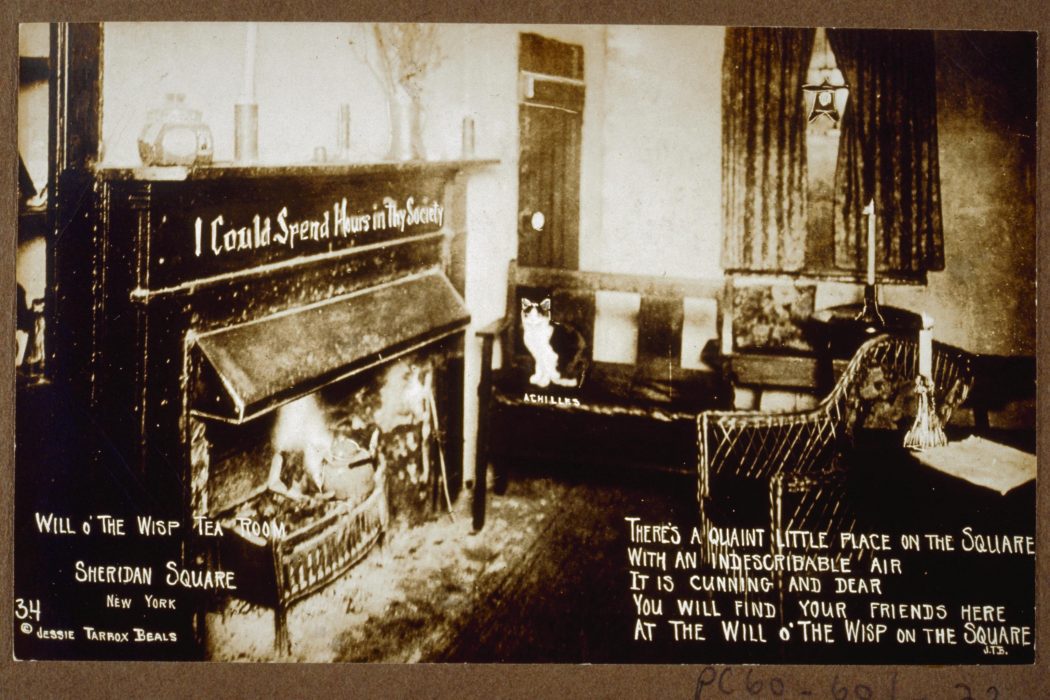 I Could Spend Hours in Thy Society
ACHILLES
WILL O' THE WISP TEA ROOM
SHERIDAN SQUARE
NEW YORK
34
© JESSIE TARBOX BEALS
THERE'S A QUAINT LITTLE PLACE ON THE SQUARE
WITH AN INDESCRIBABLE AIR
IT IS CUNNING AND DEAR
YOU WILL FIND YOUR FRIENDS HERE
AT THE WILL O' THE WISP ON THE SQUARE
J.T.B.